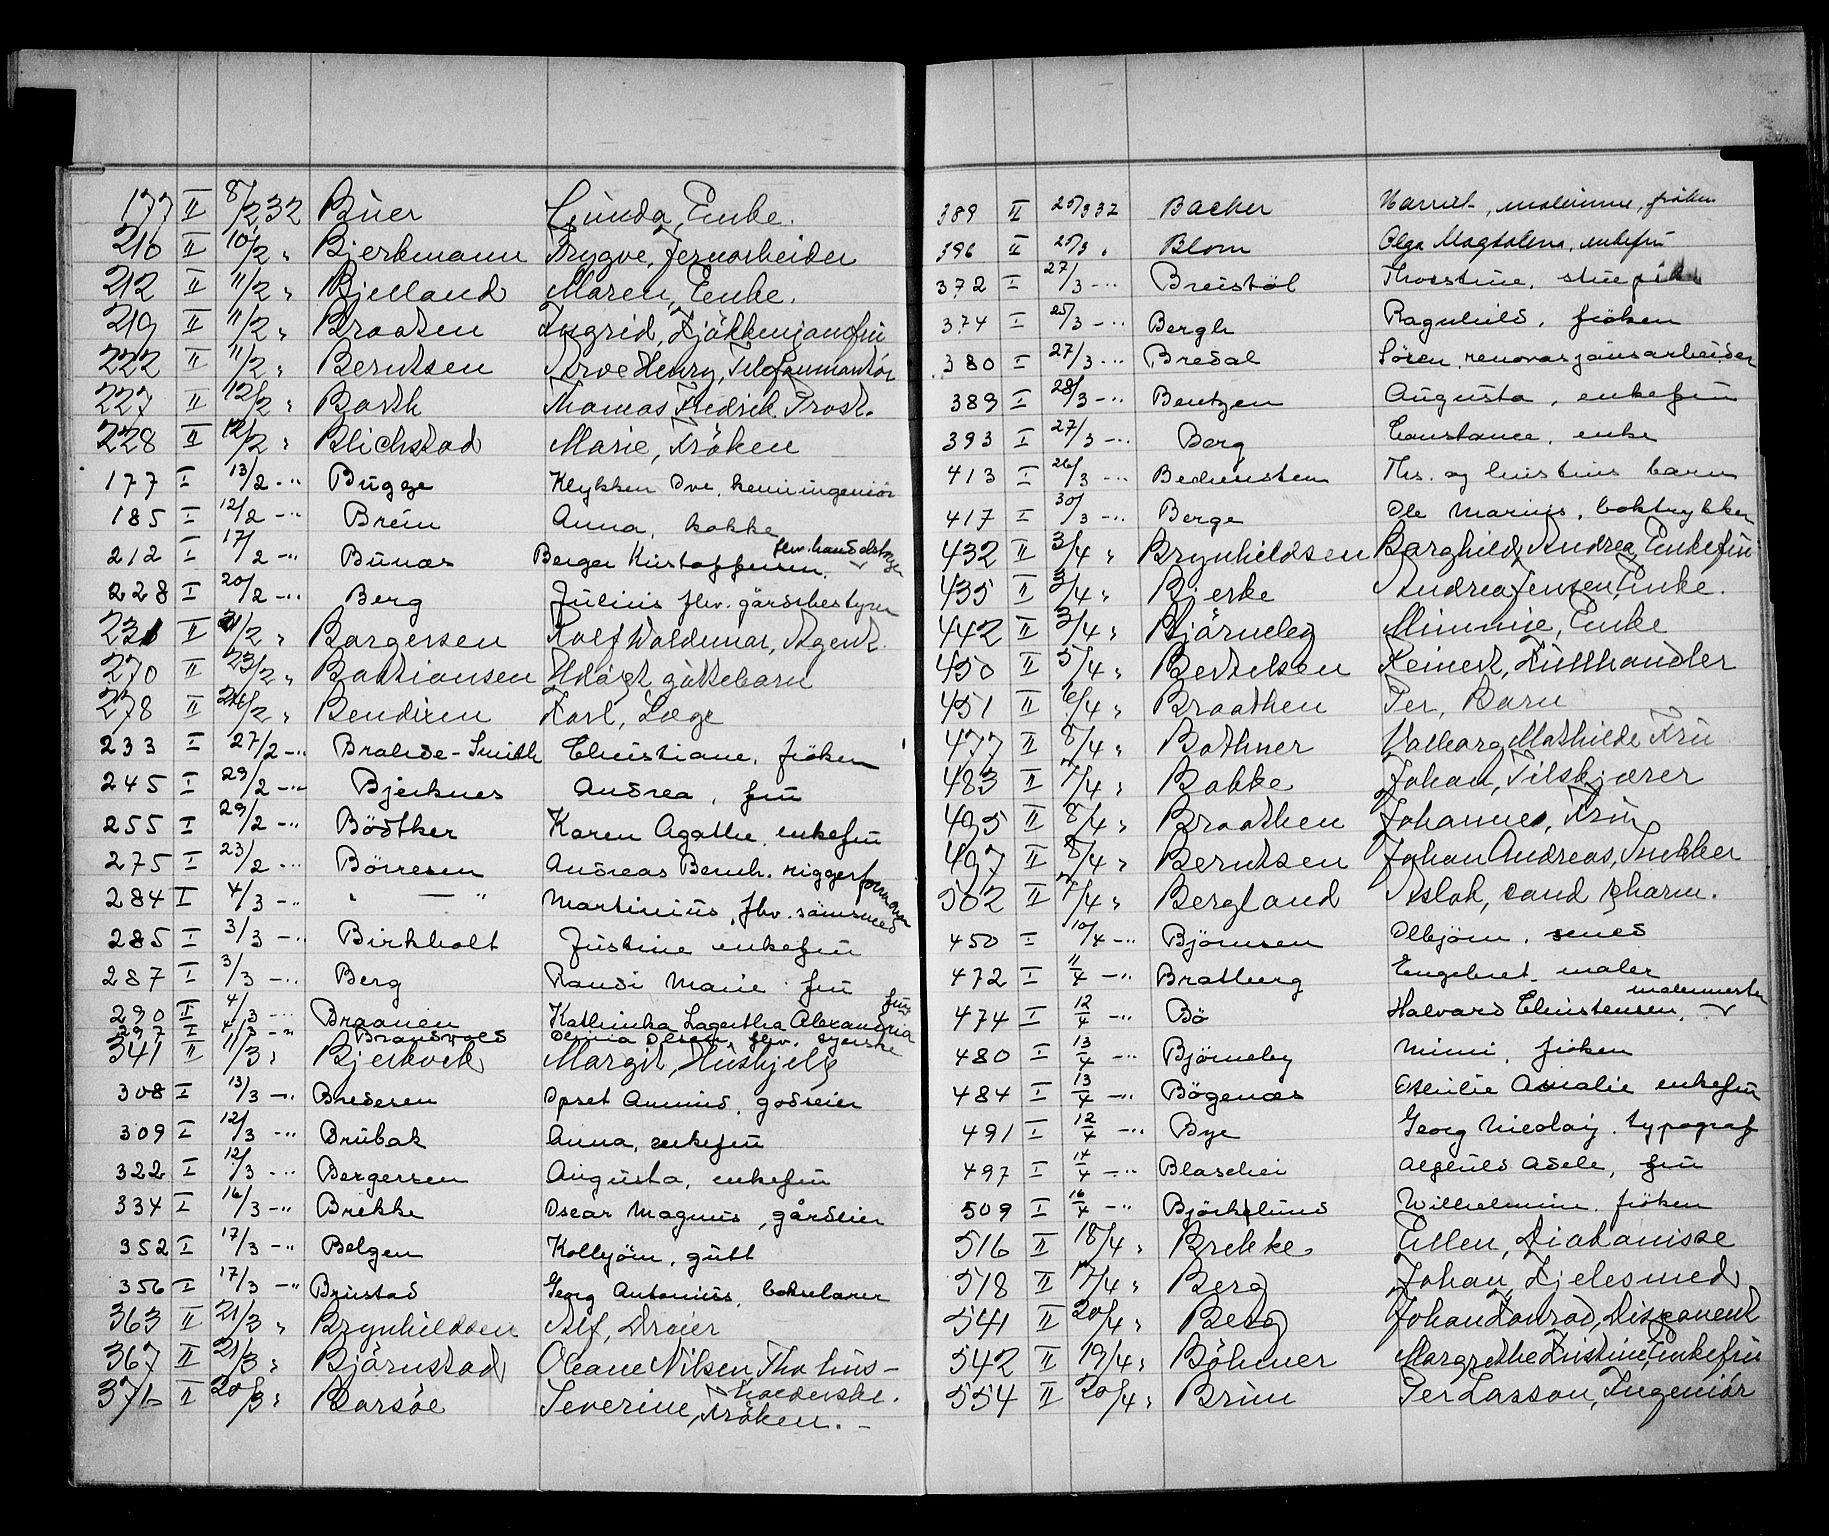 177 II 8/2 32 Buer Gunda, Enke.
210 II 10/2 " Bjerkmann Trygve, Jernarbeider
212 II 11/2 " Bjelland Maren, Enke.
219 II 11/2 " Braaten Ingrid, Kjökkenjomfru
222 II 11/2 " Berntsen Arve Henry, Telefonmontör
227 II 12/2 " Barth Thomas Fredrik Prost.
228 II 12/2 " Blichstad Marie, Fröken
177 I 13/2 -" Bugge Klykken Ove, kemiingeniör
185 I 12/2 -" Breim Anna, kokke
212 I 17/2 -" Bunæs Berger Kristoffersen. fhv. handelsbetyrer
228 I 20/2 -" Berg Julius fhv. gårdsbestyrer
231 II 21/2 " Borgersen Rolf Waldemar, Agent.
270 II 23/2 " Bastiansen Udöpt guttebarn
278 II 26/2 " Bendixen Karl, Læge
233 I 27/2 -" Brahde-Smith Christiane, fröken
245 I 29/2 -" Bjerknes Andrea, fru
255 I 29/2 -" Bödtker Karen Agathe, enkefru
275 I 23/2 -" Börresen Andreas Bernh. riggerformann
284 I 4/3 -" " — " Martinius, fhv. sömsmed
285 I 3/3 -" Birkholt Justine enkefru
287 I 3/3 -" Berg Randi Marie fru
290 II 4/3 -" Braanen Kathinka Lagertha Alexandria fru
297 I 4/3 -" Brandvold Olivia Olsen, fhv. syerske
341 II 11/3 " Bjerkvik Margit, Hushjelp
308 I 13/3 -" Bredesen Opset Amund, godseier
309 I 12/3 -" Brubak Anna, enkefru
322 I 12/3 -" Bergersen Augusta, enkefru
334 I 16/3 -" Brekke Oscar Magnus, gårdeier
352 I 17/3 -" Belgen Kolbjörn, gutt
356 I 17/3 -" Brustad Georg Antonius, bokselærer
363 II 21/3 " Brynhildsen Alf, Dreier
367 II 21/3 " Björnstad Oleane Nilsen Fhv hus-
376 II 20/3 " Borsöe Severine, Fröken. - holderske.
389 II 25/3 32 Backer Harriet, malerinne, fröken
396 II 25/3 " Blom Olga Magdalena, enkefru
372 I 27/3 -" Breistöl Thorstine, stuepike
374 I 25/3 -" Bergh Ragnhild, fröken
380 I 27/3 -" Bredal Sören, renovasjonsarbeider
389 I 28/3 -" Bentzen Augusta, enkefru
393 I 27/3 -" Berg Constance, enke
413 I 26/3 -" Bechensten Ths. og Christines barn
417 I 30/3 -" Berge Ole Marius, boktrykker
432 II 3/4 " Brynhildsen Borghild Andrea Enkefru
435 II 3/4 " Bjerke Andrea Jensen, Enke.
442 II 3/4 " Björneby Mimmie, Enke
450 II 5/4 " Bertelsen Reinert, Kullhandler
451 II 6/4 " Braathen Per, Barn
477 II 8/4 " Bothner Valborg Mathilde Fru
483 II 7/4 " Bakke Johan, Tilskjærer
495 II 8/4 " Braathen Johanne, Fru
497 II 8/4 " Berntsen Johan Andreas, Snekker
502 II 7/4 " Bergland Aslak, cand pharm.
450 I 10/4 -" Björnsen Olbjörn, smed
472 I 11/4 -" Bratberg Engebret maler
474 I 12/4 -" Bö Halvard Christensen, malermester
480 I 13/4 -" Björneby Mimi, fröken
484 I 13/4 -" Bögenæs Othilie Amalie enkefru
491 I 12/4 -" Bye Georg Nicolay. typograf
497 I 14/4 -" Blaschei Alfhild Adele, fru
509 I 16/4 -" Björklund Wilhelmine fröken
516 II 18/4 " Brekke Ellen, Diakonisse
518 II 17/4 " Berg Johan, Kjelesmed
541 II 20/4 " Berg Johan Konrad, Disponent
542 II 19/4 " Böhmer Margrethe Kristine, Enkefru
554 II 20/4 " Brun Per Lasson, Ingeniör